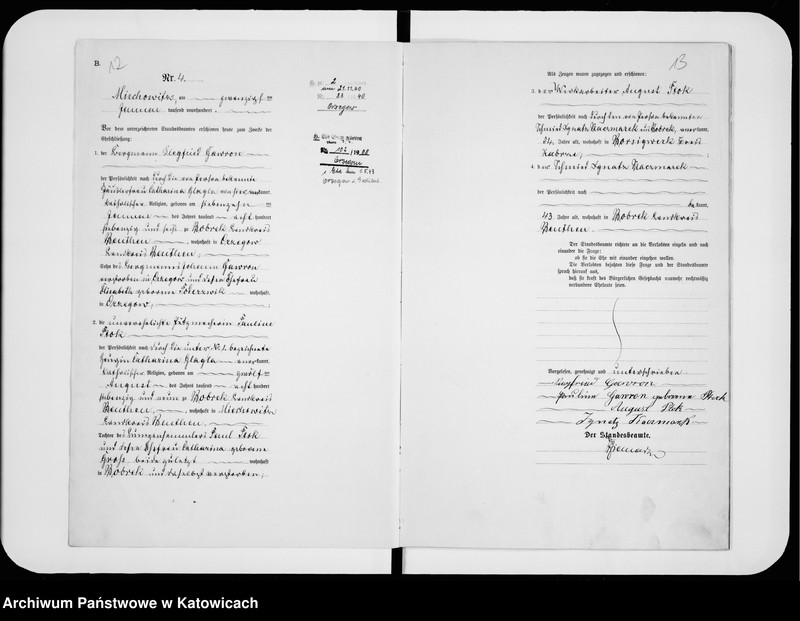 B. 12
Nr. 4.
Miechowitz, am zwanzigsten
Januar tausend neunhundert
Vor dem unterzeichneten Standesbeamten erschienen heute zum Zwecke der
Eheschließung:
1. der Bergmann Siegfried Gawron
der Persönlichkeit nach durch die von Person bekannte
Catharina Glagla kannt,
katholischer Religion, geboren am siebenzehnten
Januar des Jahres tausend acht hundert
siebenzig und sechs zu Bobrek Landkreis
Beuthen, wohnhaft in Orzegow
Landkreis Beuthen,
Sohn des Bergmanns Gawron
verstorben in Orzegow und dessen Ehefrau
Elisabeth geborene wohnhaft
in Orzegow;
2. die unverehelichte Putzmacherin Pauline
der Persönlichkeit nach durch die unter Nr. 1 bezeichnete
Zeugin Catharina Glagla anerkannt,
katholischer Religion, geboren am zwölften
August des Jahres tausend acht hundert
siebenzig und neun zu Bobrek Landkreis
Beuthen, wohnhaft in Miechowitz
Landkreis Beuthen,
Tochter des Paul
und dessen Ehefrau Catharina geborene
beide zuletzt wohnhaft
in Bobrek und daselbst verstorben;
2
21.11.40
40
Orzegow
102
Orzegow
13
Als Zeugen waren zugezogen und erschienen:
3. der August
der Persönlichkeit nach durch den von Person bekannten
Schmied Ignatz Kaczmarek in Bobrek, anerkannt,
Jahre alt, wohnhaft in Borsigwerk Kreis
Zabrze;
4. der Schmied Ignatz Kaczmarek
der Persönlichkeit nach
bekannt,
43 Jahre alt, wohnhaft in Bobrek Landkreis
Beuthen.
Der Standesbeamte richtete an die Verlobten einzeln und nach
einander die Frage:
ob sie die Ehe mit einander eingehen wollen.
Die Verlobten bejahten diese Frage und der Standesbeamte
sprach hierauf aus,
daß sie kraft des Bürgerlichen Gesetzbuchs nunmehr rechtmäßig
verbundene Eheleute seien.
Vorgelesen, genehmigt und unterschrieben
Siegfried Gawron
Pauline Gawron geborene
August
Ignatz Kaczmarek
Der Standesbeamte.
Archiwum Państwowe w Katowicach